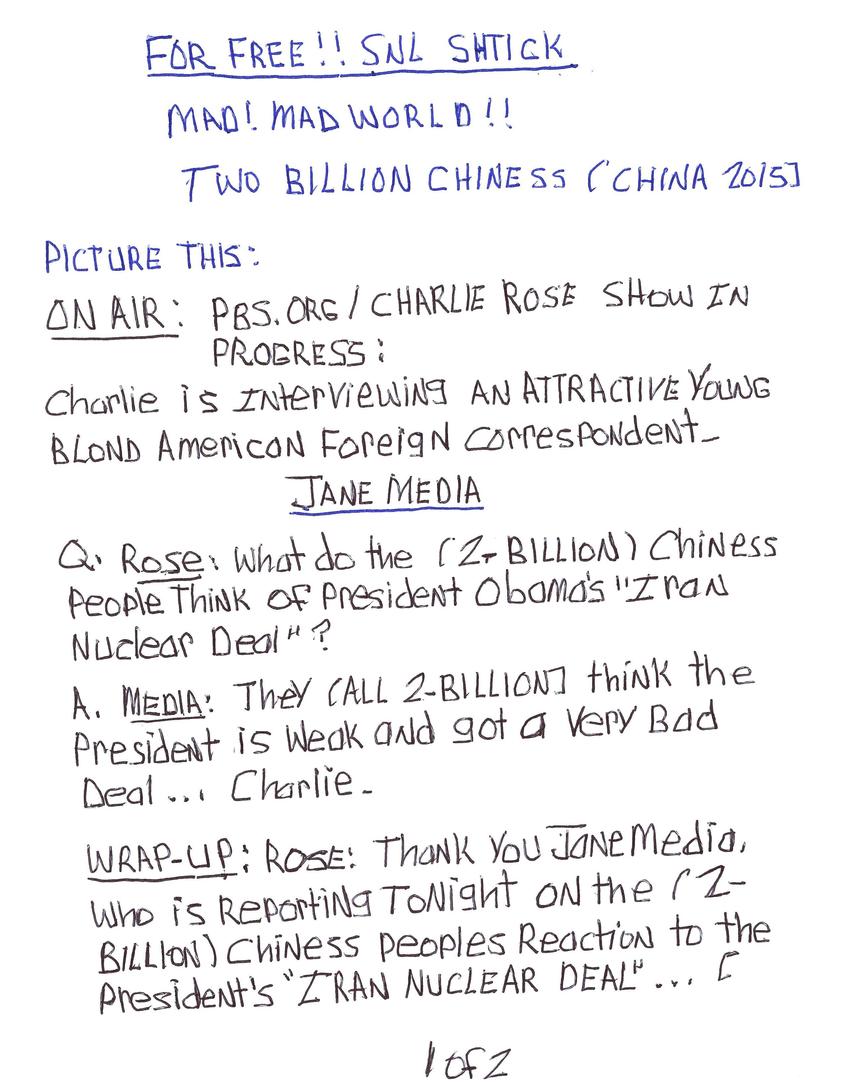 FOR FREE!! SNL SHTICK
MAD! MAD WORLD!!
TWO BILLION CHINESS ('CHINA 2015]
PICTURE THIS:
ON AIR: PBS.ORG / CHARLIE ROSE SHOW IN
PROGRESS:
Charlie is INterViewiNg AN ATTRACTIVE YOUNG
BLOND AMericaN ForeigN CorresPoNdeNt-
JANE MEDIA
Q. Rose: What do the (2-BILLION) ChiNess
People ThiNK OF President Obama's "IraN
Nuclear Deal"?
A. MEDIA: They [ALL 2-BILLION] thiNK the
President is Weak aNd got a Very Bad
Deal... Charlie-
WRAP-UP: ROSE: ThaNK You JaNe Media,
Who is RePortiNg ToNight oN the (2-
BILLION) ChiNess PeoPles ReactioN to the
President's "IRAN NUCLEAR DEAL"... [
1 of 2